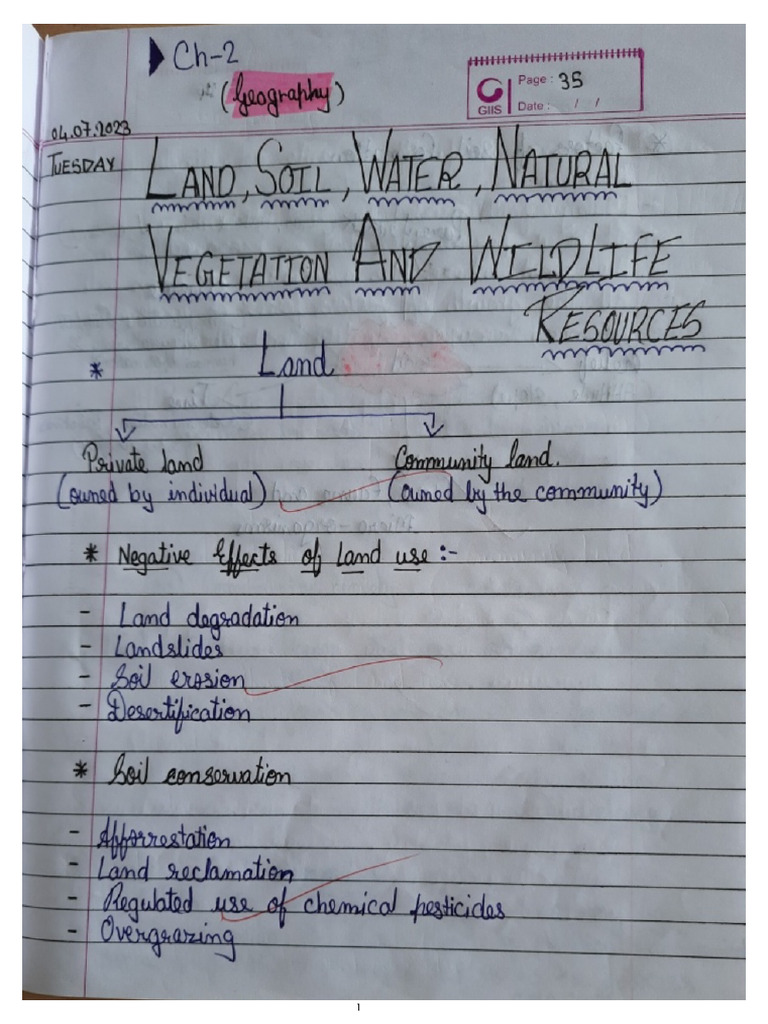 Ch-2
(Geography)
GIIS
Page: 35
Date: / /
04.07.2023
TUESDAY
LAND, SOIL, WATER, NATURAL
VEGETATION AND WILDLIFE
RESOURCES
* Land
Private land Community land.
(owned by individual) (owned by the community)
* Negative Effects of Land use :-
- Land degradation
- Landslides
- Soil erosion
- Desertification
* Soil conservation
- Afforrestation
- Land reclamation
- Regulated use of chemical pesticides
- Overgrazing
1